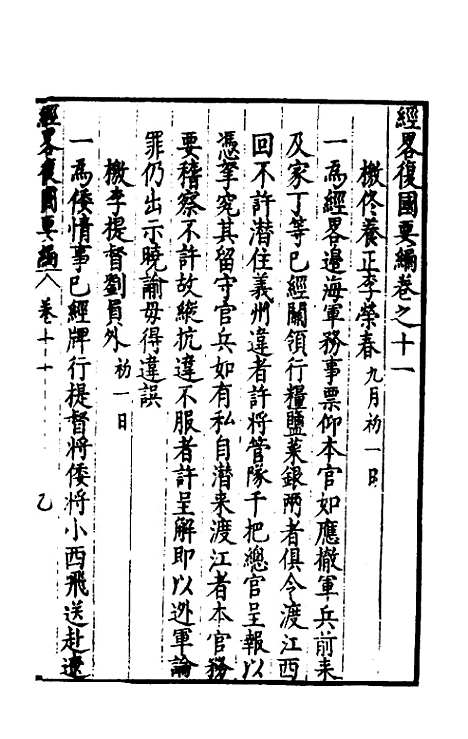 經略復國要編卷之十一
檄佟養正李榮春 九月初一日
一爲經略邊海軍務事票仰本官如應撤軍兵前来
及家丁等已經關領行糧鹽菜銀兩者俱令渡江西
回不許潛住義州違者許將管隊千把總官呈報以
憑拏究其留守官兵如有私自潛来渡江者本官務
要稽察不許故縱抗違不服者許呈解即以迯軍論
罪仍出示曉諭毋得違誤
檄李提督劉員外 初一日
一爲倭情事已經牌行提督將倭將小西飛送赴遼
經略復國要編 卷十一